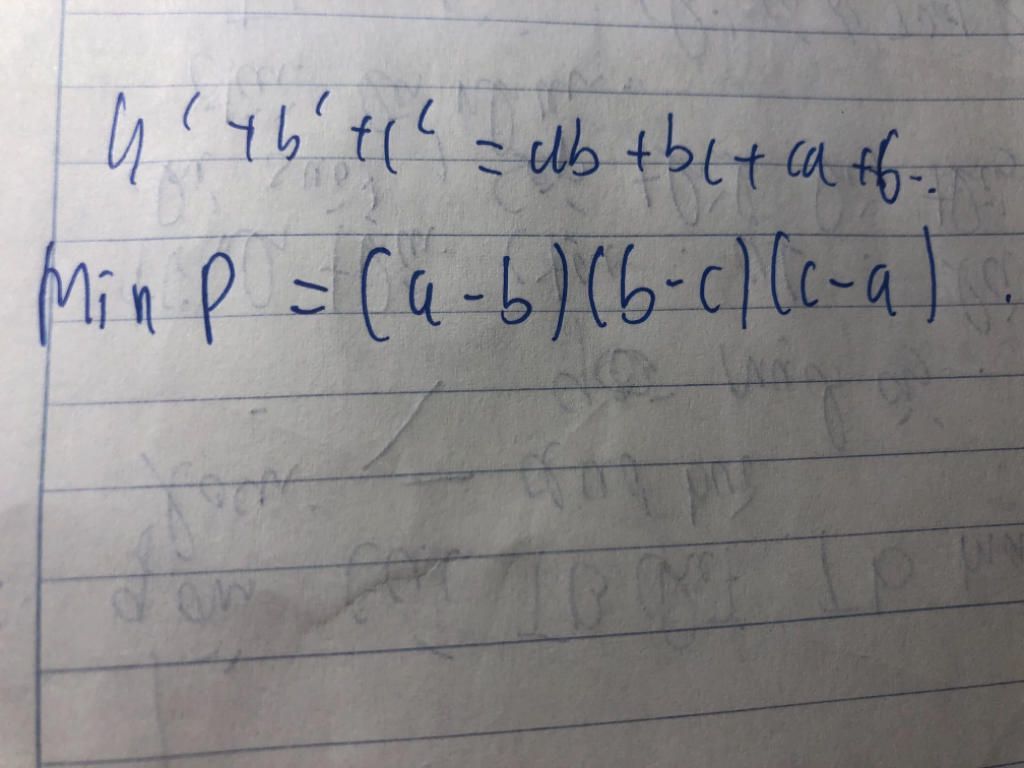 a² + b² + c² = ab + bc + ca + 6.
Min P = (a-b)(b-c)(c-a).